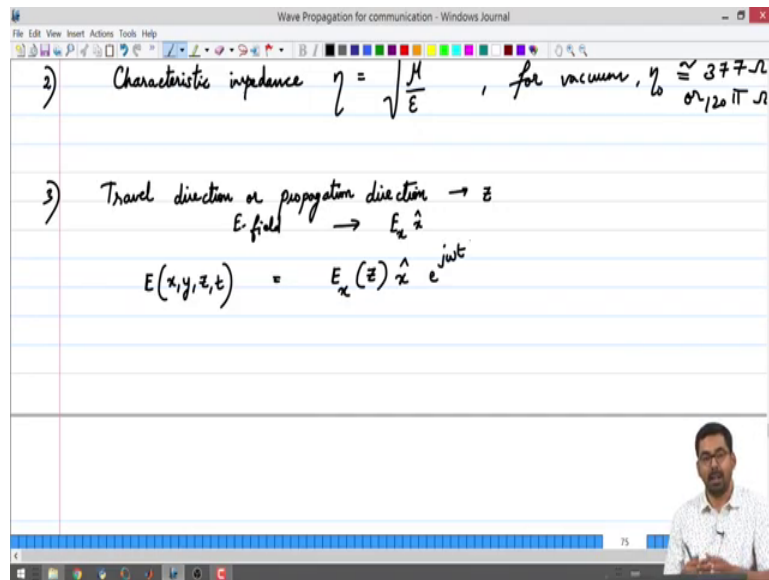 Wave Propagation for communication - Windows Journal
File Edit View Insert Actions Tools Help
B I
2) Characteristic impedance η = √μ/ε , for vacuum, η₀ ≅ 377Ω
or, 120 π Ω
3) Travel direction or propagation direction → z
E-field → Eₓ x̂
E(x,y,z,t) = Eₓ(z) x̂ e^jωt
75